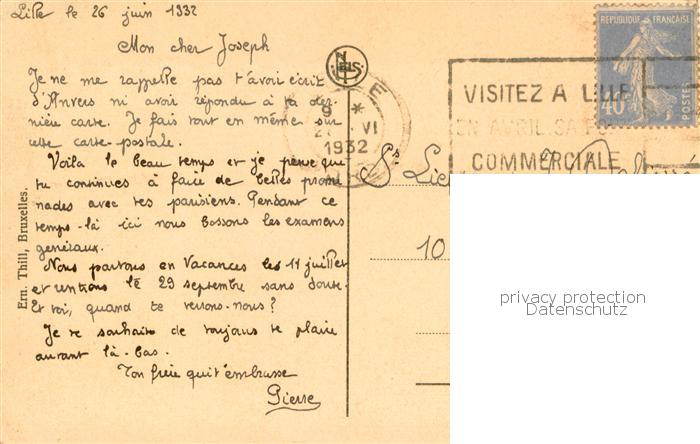 Lille le 26 juin 1932
Mon cher Joseph
Je ne me rappelle pas t'avoir écrit
d'Anvers ni avoir répondu à ta der-
nière carte. Je fais tout en même sur
cette carte-postale.
Voilà le beau temps et je pense que
tu continues à faire de belles prome
nades avec tes parisiens. Pendant ce
temps-là ici nous bossons les examens
généraux.
Nous partons en Vacances les 11 juillet
et rentrons le 29 septembre sans doute.
Et toi, quand te verrons-nous?
Je te souhaite de toujours te plaire
autant là-bas.
Ton frère qui t'embrasse
Pierre
Ern. Thill, Bruxelles.
NELS
9 *
VI
1932
REPUBLIQUE FRANÇAISE
40
POSTES
VISITEZ A LILLE
EN AVRIL SA
COMMERCIALE
10
privacy protection
Datenschutz